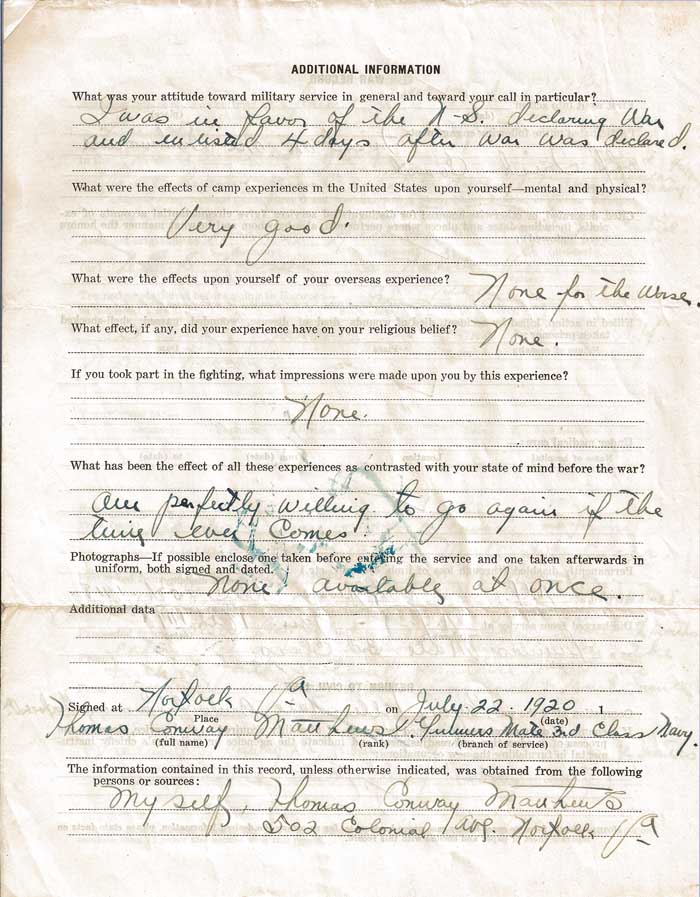 ADDITIONAL INFORMATION
What was your attitude toward military service in general and toward your call in particular?
I was in favor of the U-S. declaring War
and enlisted 4 days after war was declared.
What were the effects of camp experiences in the United States upon yourself—mental and physical?
Very good.
What were the effects upon yourself of your overseas experience?
None for the worse.
What effect, if any, did your experience have on your religious belief?
None.
If you took part in the fighting, what impressions were made upon you by this experience?
None.
What has been the effect of all these experiences as contrasted with your state of mind before the war?
Am perfectly willing to go again if the
time ever comes
Photographs—If possible enclose one taken before entering the service and one taken afterwards in
uniform, both signed and dated.
None available at once.
Additional data
Signed at Norfolk Va on July. 22. 1920 1
Place (date)
Thomas Conway Matthews. Gunners Mate 3rd Class Navy.
(full name) (rank) (branch of service)
The information contained in this record, unless otherwise indicated, was obtained from the following
persons or sources:
Myself, Thomas Conway Matthews
502 Colonial Ave. Norfolk Va